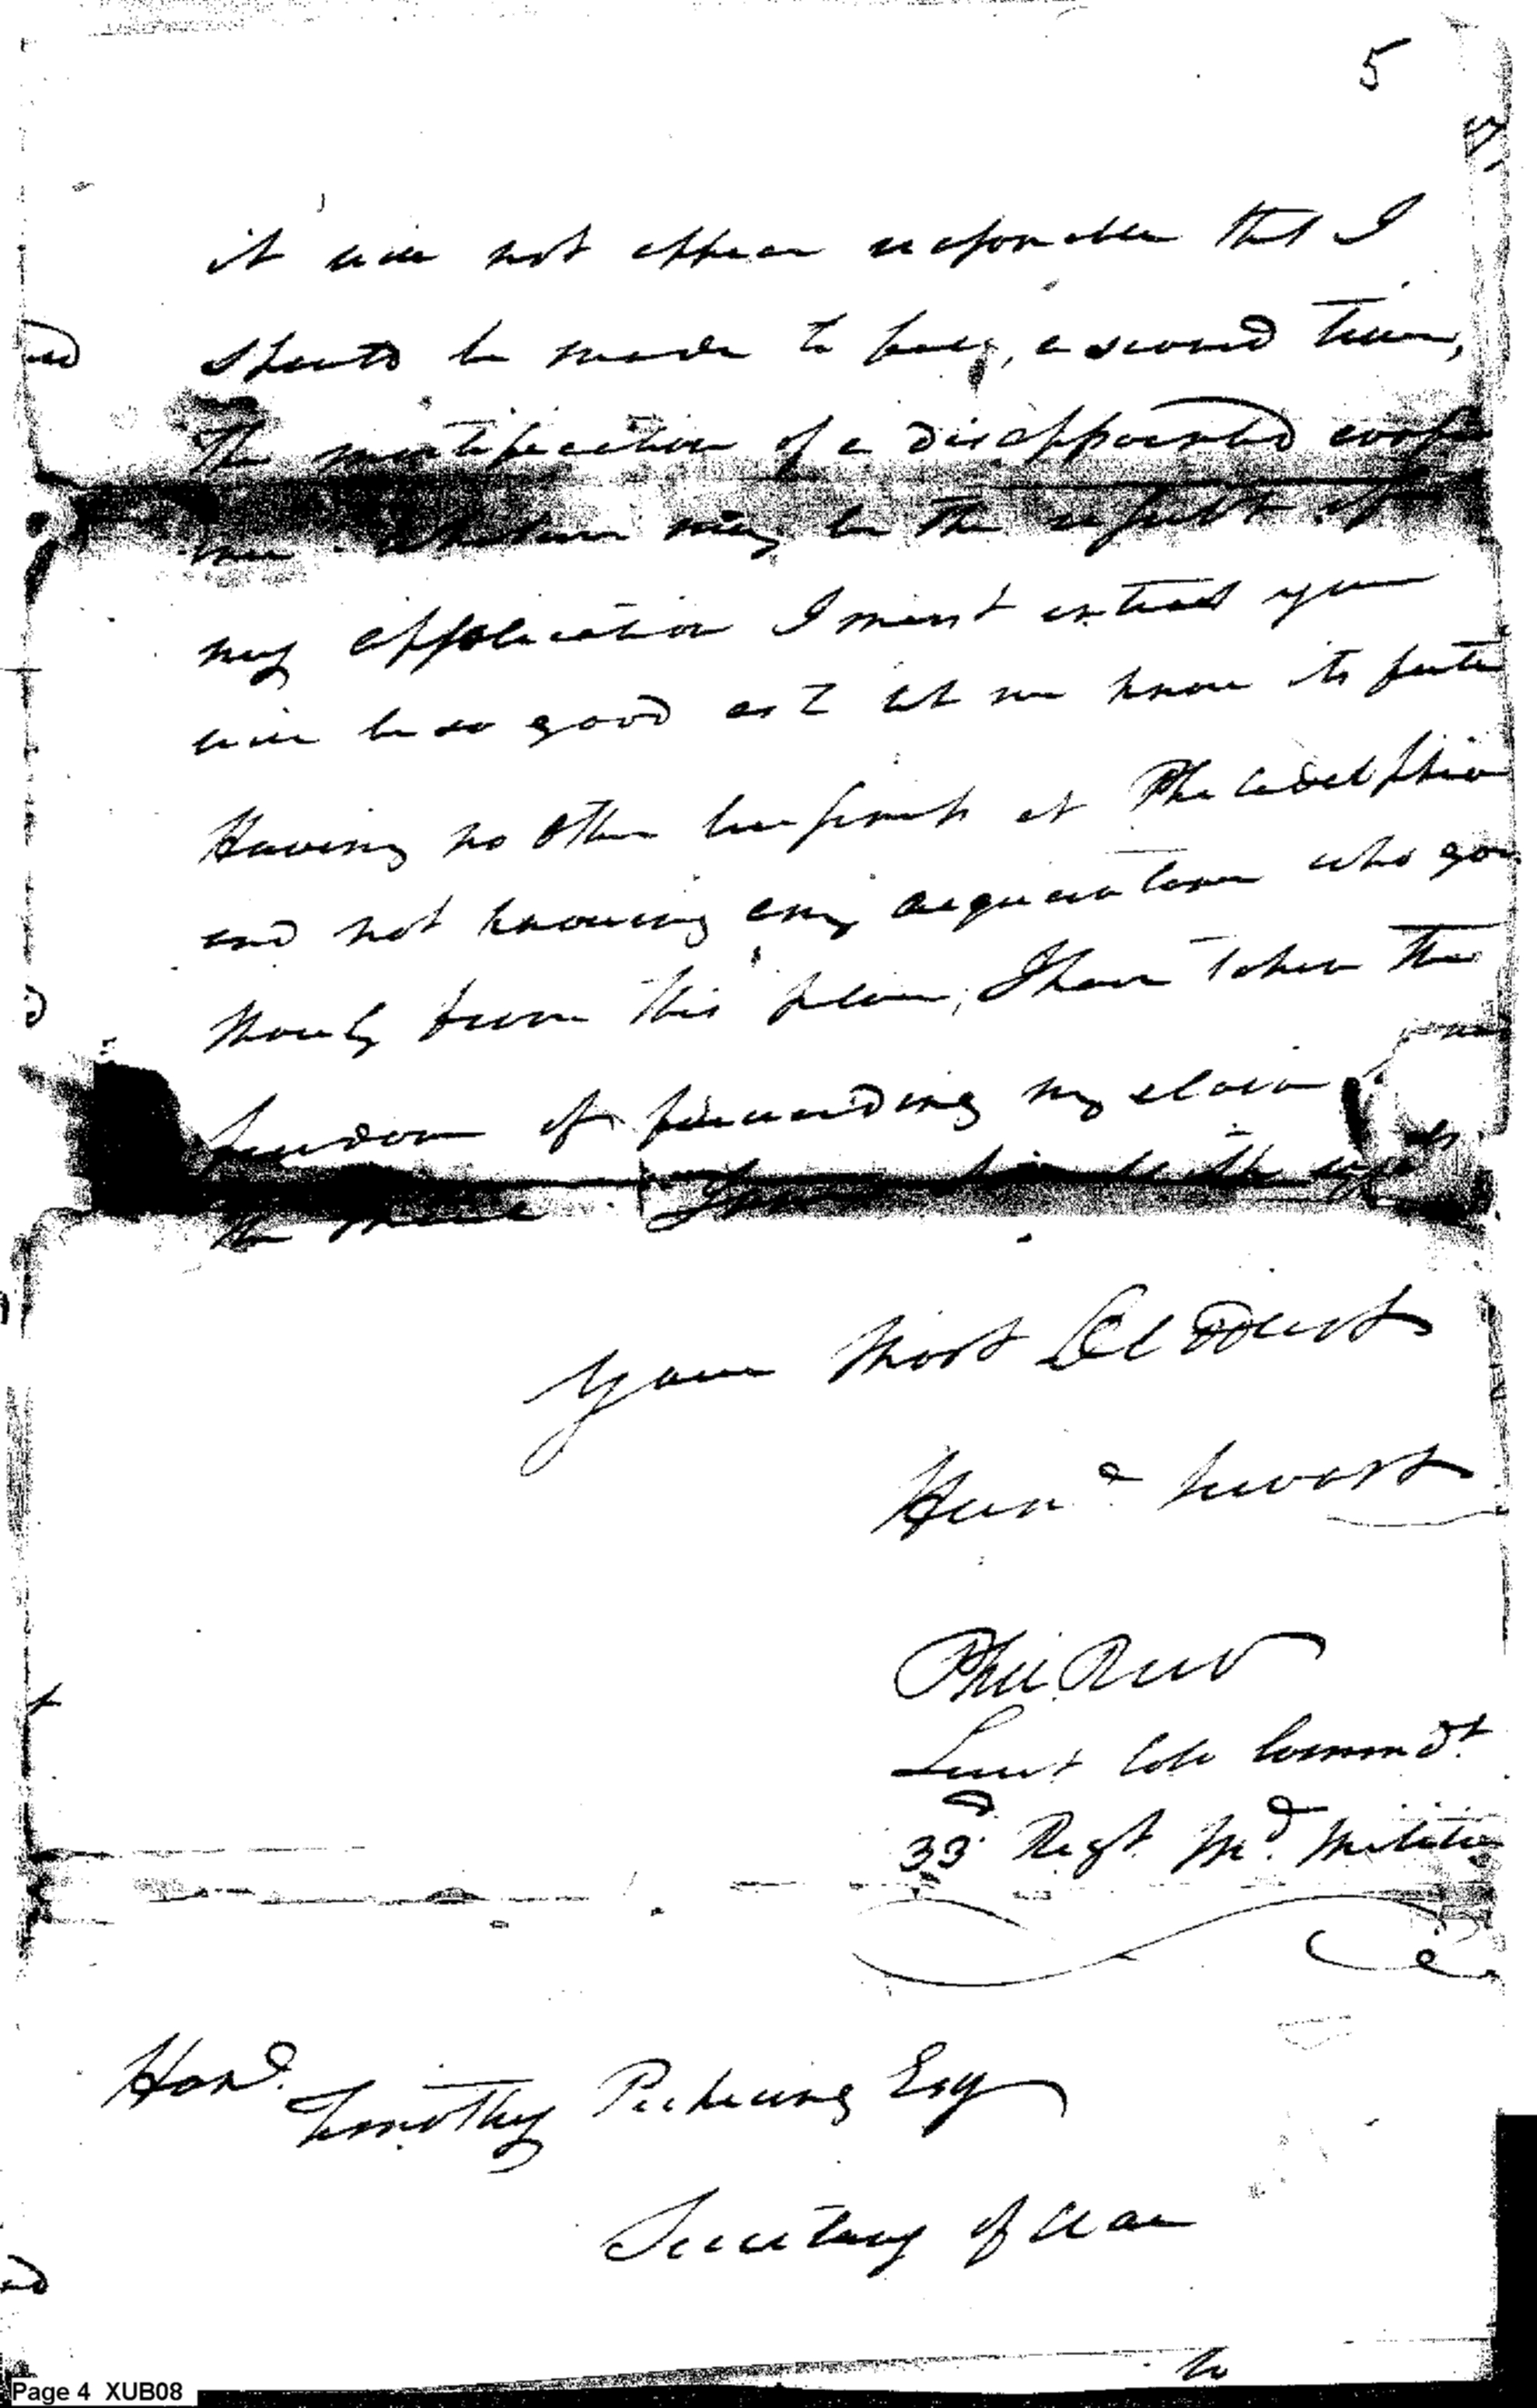 5
it will not appear reasonable that I
should be made to feel, a second time,
The mortification of a disappointed
me. Whatever may be the result of
my application I must entreat you
will be so good as to let me know its fate
Having no other business at Philadelphia
and not knowing any acquaintance who goes
shortly from this place, I have taken the
freedom of forwarding my claim
the mail. I am Sir with the
Your Most Obedient
Humd. Servant
Phil. Reed
Lieut Coll Commdt
33d Regt Md. Militia
Hond. Timothy Pickering Esq
Secretary of War
to
Page 4 XUB08